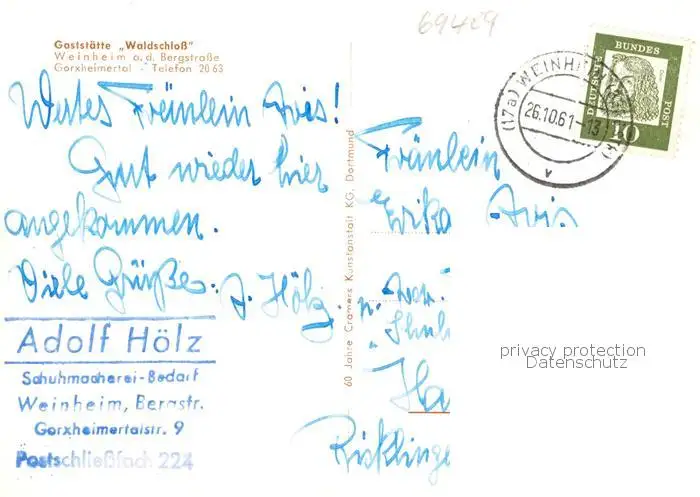 69429
Gaststätte „Waldschloß"
Weinheim a.d. Bergstraße
Gorxheimertal - Telefon 20 63
Wertes Fräulein Avis!
Gut wieder hier
angekommen.
Viele Grüße. A. Hölz.
Adolf Hölz
Schuhmacherei-Bedarf
Weinheim, Bergstr.
Gorxheimertalstr. 9
Postschließfach 224
60 Jahre Cramers Kunstanstalt KG. Dortmund
DEUTSCHE
BUNDES
POST
10
(17a) WEINHEIM
26.10.61-13
Fräulein
Erika Avis
Ha
Ricklinge
privacy protection
Datenschutz